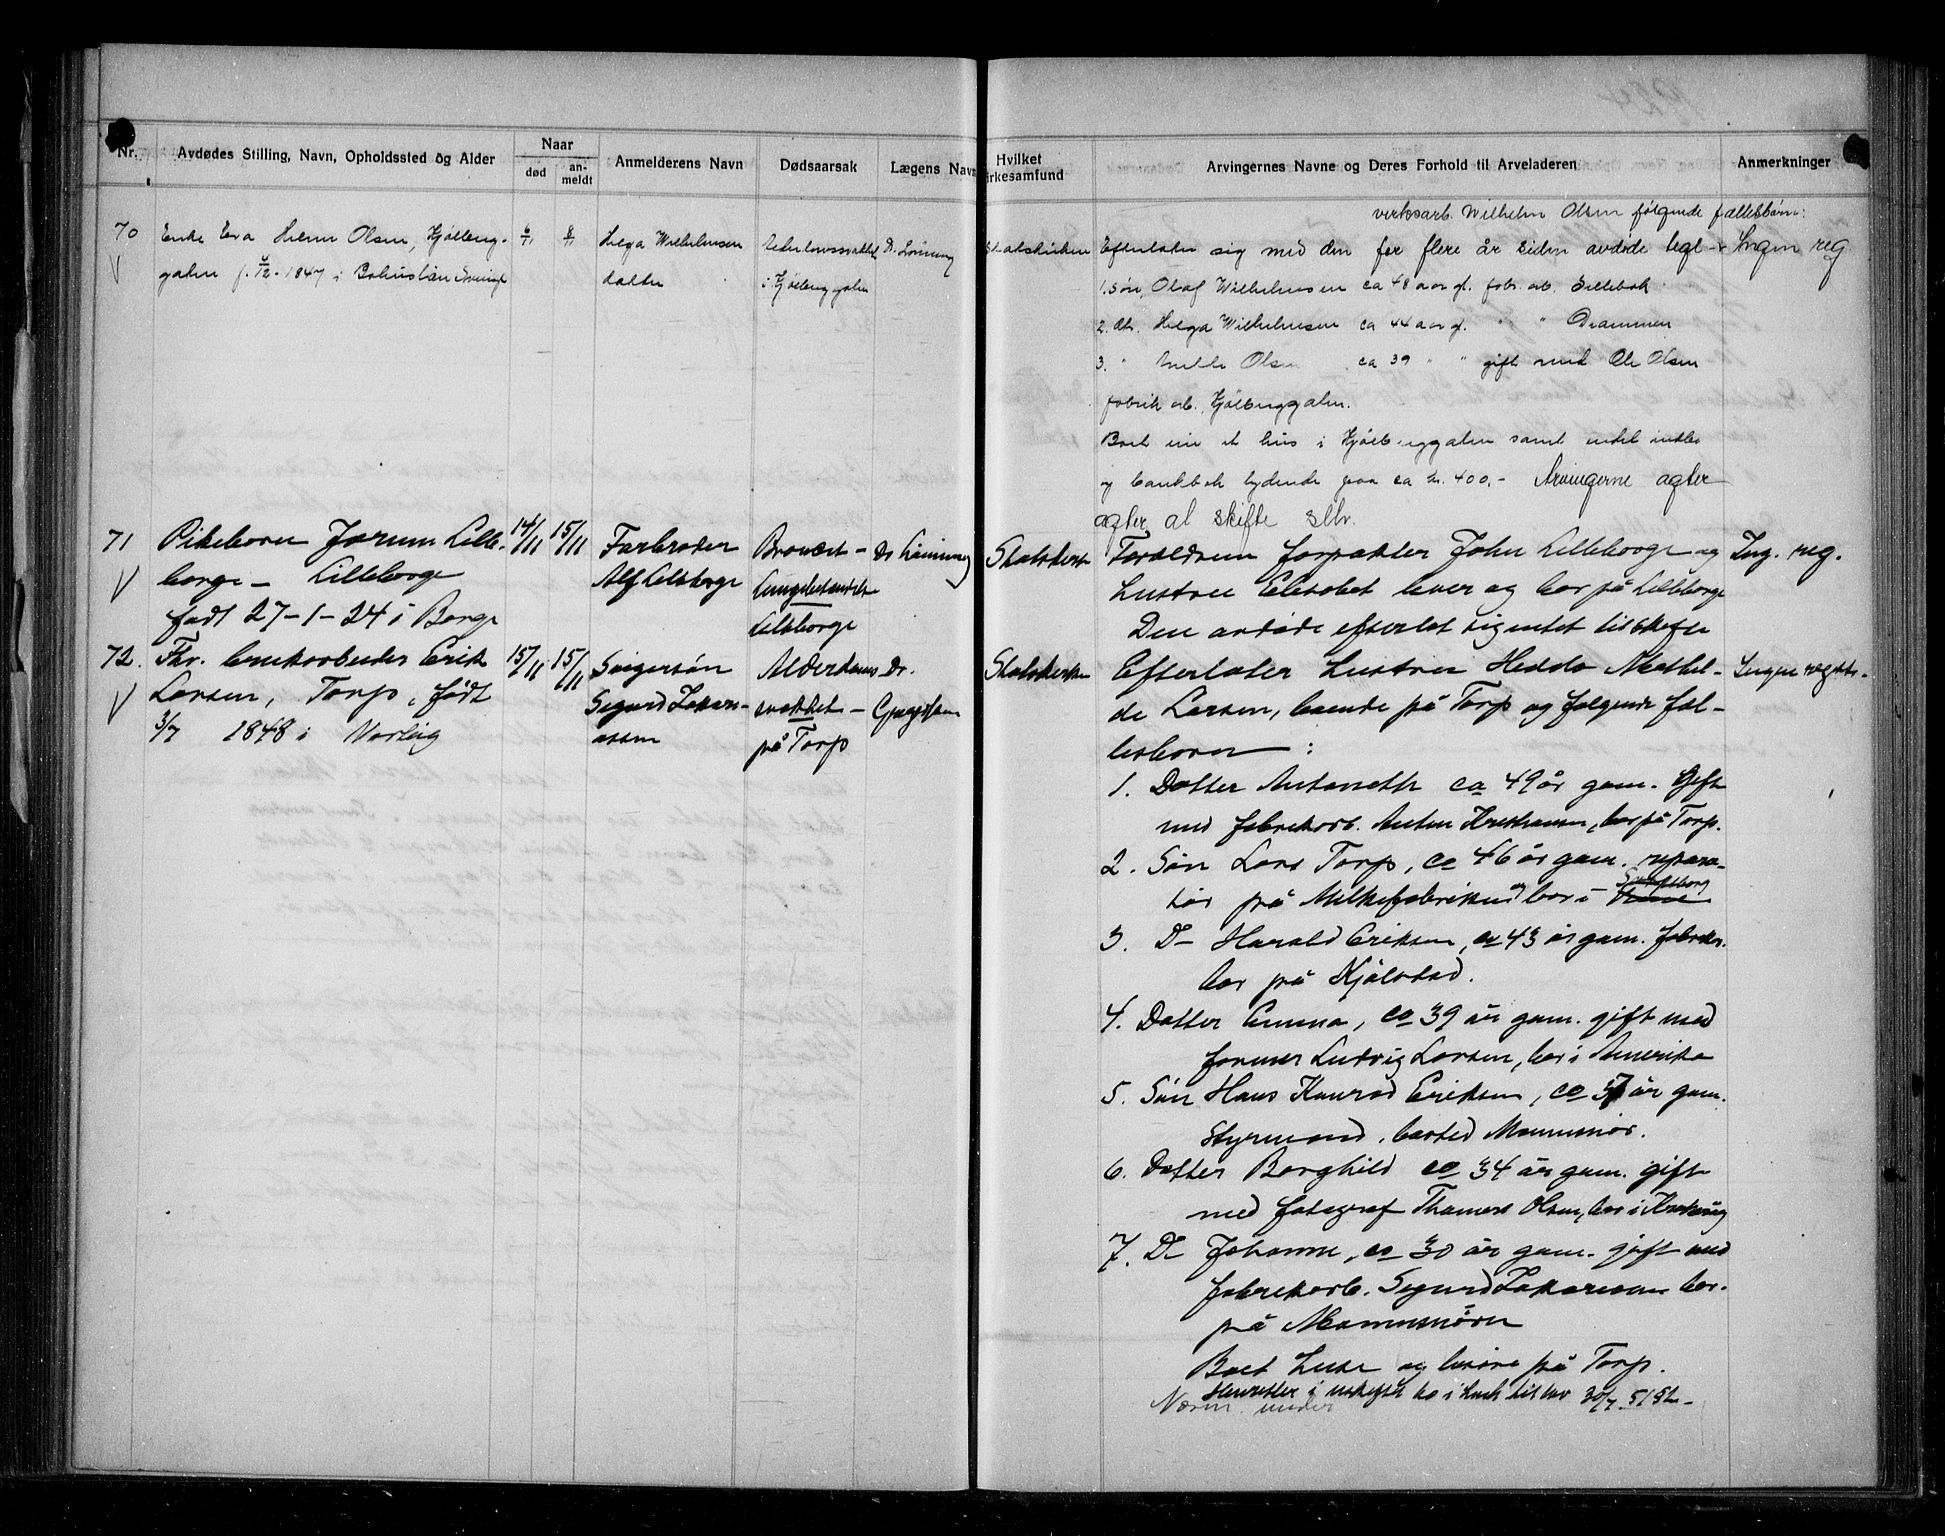 Nr.
Avdødes Stilling, Navn, Opholdssted og Alder
Naar
død
an-
meldt
Anmelderens Navn
Dødsaarsak
Lægens Navn
Hvilket
irkesamfund
Arvingernes Navne og Deres Forhold til Arveladeren
Anmerkninger
70
Enke Eva Olsen, Kjølberg-
galen f. 4/12-1847 i Bohuslän Sverige
6/11
8/11
Helga Wilhelmsen
datter
i Kjølberggalen
Dr. Lönning
Statskirken
verksarb. Wilhelm Olsen følgende fællesbørn:
Efterlater sig med den for flere år siden avdøde tegl-
1. Søn, Olaf Wilhelmsen ca 48 aar gl. fabr. arb. Sellebak
2. dtr. Helga Wilhelmsen ca 44 aar gl. " " Drammen
3. " Olsen ca 39 " " gift med Ole Olsen
fabrik arb. Kjølberggalen.
Boet eier et hus i Kjølberggalen samt endel indbo
og bankbok lydende paa ca kr. 400,- Arvingerne agter
agter at skifte selv.
Ingen reg
71
Pikebarn Jorunn Lille-
borge - Lilleborge
født 27-1-24 i Borge
14/11
15/11
Farbroder
Alf Lilleborge
Lilleborge
Dr Lönning
Statskirken
Forældrene forpakter John Lilleborge og
hustru Elisabet lever og bor på Lilleborge
Den avdøde efterlot sig intet til skifte
Ing. reg.
72.
Fhv. brukarbeider Erik
Larsen, Torp, født
3/7 1848 i Varteig
15/11
15/11
Svigersøn
Sigurd Zakari-
assen
Alderdoms
svakhet -
på Torp
Dr.
Statskirken
Efterlater hustru Hedda Mathil-
de Larsen, boende på Torp og følgende fæl-
lesbarn :
1. Datter Antonette ca 49 år gam. Gift
med fabrikarb. Anton Kristiansen, bor på Torp.
2. Søn Lars Torp, ca 46 år gam. repara-
tør på Milkefabrikken og bor i Sarpsborg
3. D- Harald Eriksen, ca 43 år gam. fabrikar.
bor på Kjølstad.
4. Datter Emma, ca 39 år gam. gift med
former Ludvig Larsen, bor i Amerika
5. Søn Hans Konrad Eriksen, ca 37 år gam.
Styrmand, bosted Moumsnør.
6. Datter Borghild ca 34 år gam. gift
med fotograf Olsen, bor i
7. D- Johanne, ca 30 år gam. gift med
fabrikarb. Sigurd Zakariassen bor
på Moumsnøren
Boet huse og løsøre på Torp.
Hensitter i uskiftet bo i
under
Ingen registr.